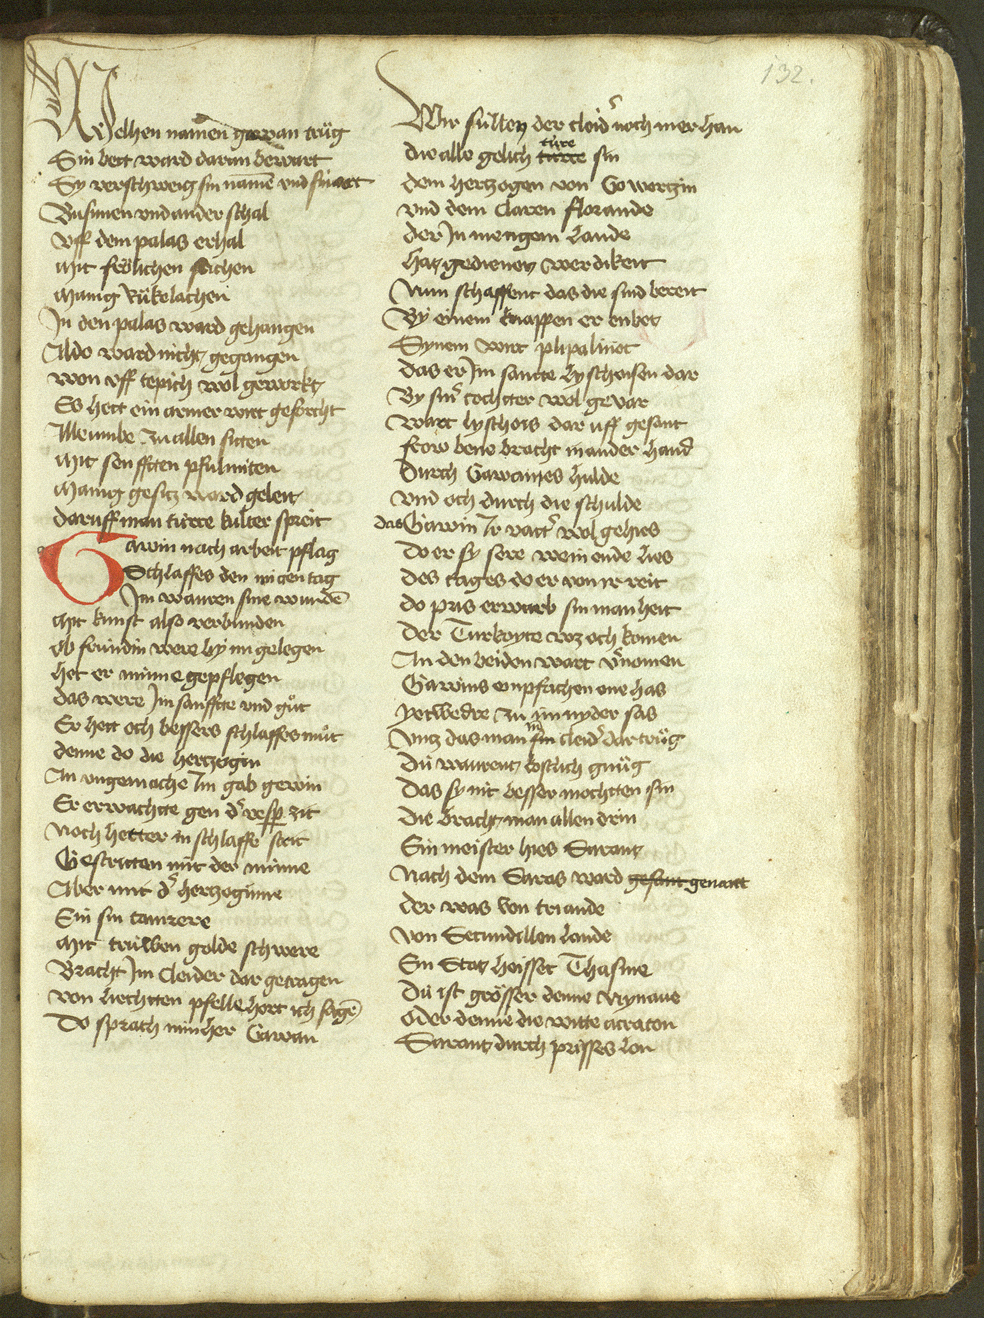 132.
Welhen namen gawan trüg
Sin bett ward daran bewart
Sy verschweig sin namē vnd sin art
Busunen vnd ander schal
Vff dem palas erhal
Mit frölichen sachen
Manig Rükelachen
In den palas ward gehangen
Aldo ward nicht gegangen
won vff tepich wol geworkt
Es hett ein armer wirt geforcht
Alevmbe zu allen sitten
Mit senfften pflumiten
Manig gesitz ward geleit
daruff man türre kulter spreit
Gawin nach arbeit pflag
Schlaffes den mitten tag
Im wauren sine wundē
Mit kunst also verbunden
Ob fründin were by im gelegen
het er minne gepflegen
das were Im sanffte vnd gůt
Er hett och bessers schlaffes můt
denne do die hertzogin
An vngemache Im gab gewin
Er erwachte gen dˢ vesper zit
Noch hetter in schlaffe strit
Gestritten mit der minne
Aber mit dˢ hertzoginne
Ein sin camrere
Mit trüwen golde schwere
Bracht Im cleider dar getragen
von liechtten pfelle hort ich sagē
Do sprach min her Gawan
Wir süllen der cleidˢ noch mer han
die alle gelich türe sin
dem hertzogen von Gowertzin
vnd dem claren florande
der In mengem lande
hatt gedienen werdikeit
Nun schaffent das die sind bereit
By einem knappen er enbot
Synem wirt plipalinot
das er Im sante lyschoisen dar
By sinˢ tochtter wol gevar
wart lyschois dar uff gesant
frow bene bracht in an der hand
Durch Gawanes hulde
vnd och durch die schulde
das Gawin Ir vattˢ wol gehies
do er sy sere weinende lies
des tages do er von ir reit
do pris erwarb sin manheit
Der Turkoyte wz och komen
An den beiden wart vˢnomen
Gawins enpfachen one has
yetwedre zu im nyder sas
Vntz das man in cleidˢ dar trüg
Dü waurent kostlich gnüg
Das sy nit besser mochtten sin
die bracht man allen drin
Ein meister hies Sarant
Nach dem Saras ward gesant genant
der was von triande
Von Secundillen lande
Ein Stat heisset Thasme
Dü ist grösser denne nynaue
Oder denne die witte acraton
Sarant durch prisses lon